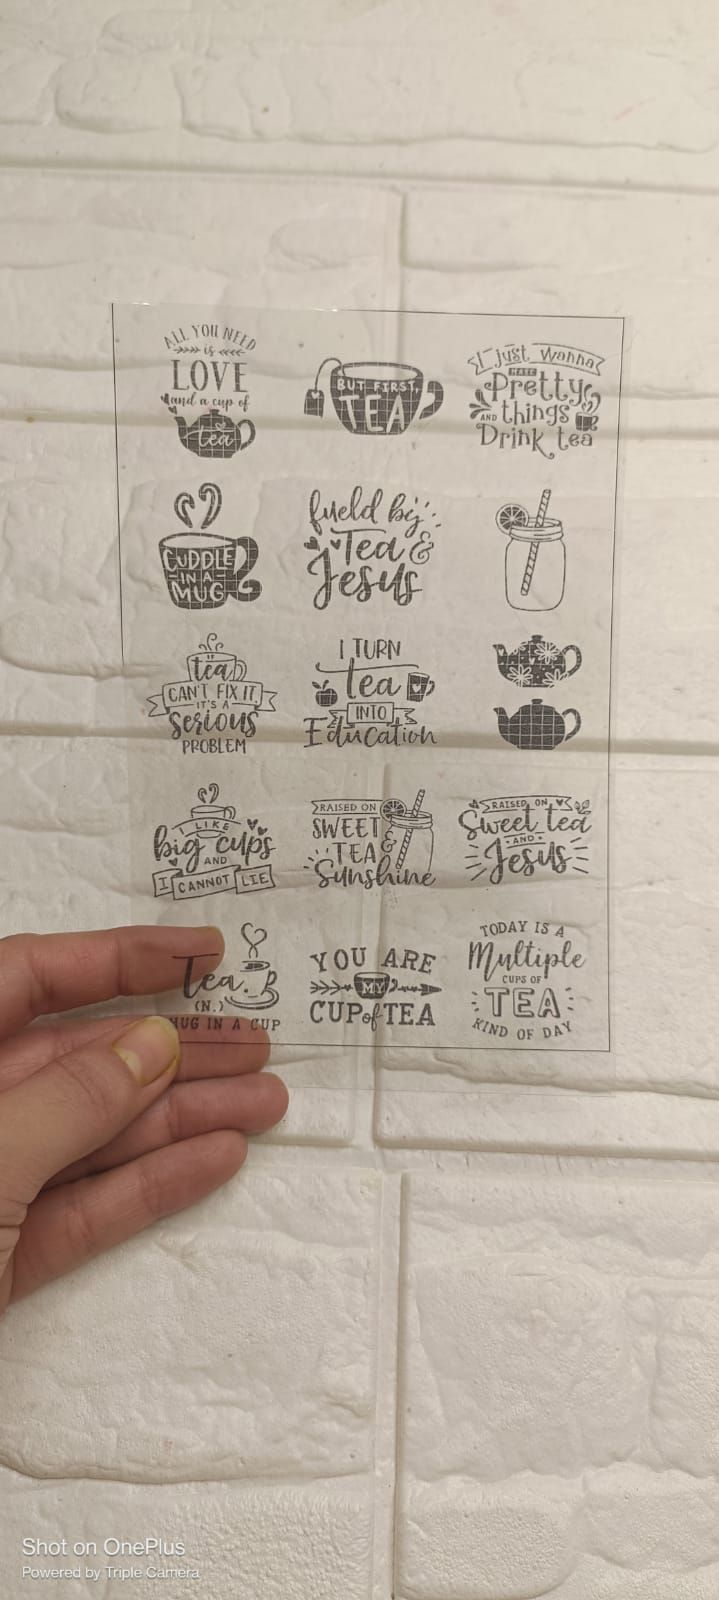 ALL YOU NEED
is
LOVE
and a cup of
tea
BUT FIRST,
TEA
I just wanna
MAKE
Pretty
AND things
Drink tea
CUDDLE
IN A
MUG
fueld by
Tea &
Jesus
IF
tea
CAN'T FIX IT,
IT'S A
serious
PROBLEM
I TURN
tea
INTO
Education
I LIKE
big cups
AND
I CANNOT LIE
RAISED ON
SWEET
TEA &
Sunshine
RAISED ON
Sweet tea
AND
Jesus
Tea.
(N.)
HUG IN A CUP
YOU ARE
MY
CUP of TEA
TODAY IS A
Multiple
CUPS OF
TEA
KIND OF DAY
Shot on OnePlus
Powered by Triple Camera